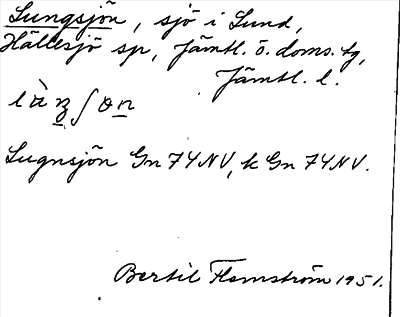 Lungsjön, sjö i Lund,
Hällesjö sp, Jämtl. ö. doms. tg,
Jämtl. l.
Lugnsjön Gn 74 NV, k Gn 74 NV.
Bertil Flemström 1951.